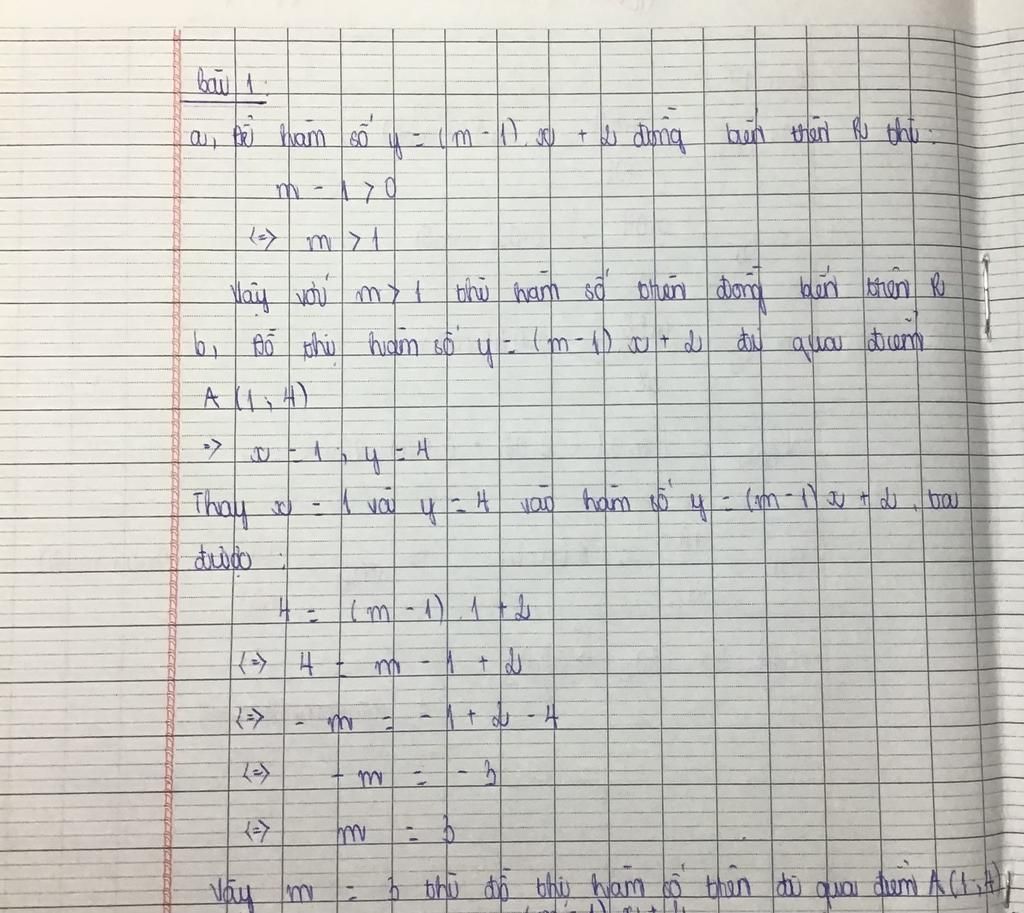 Bài 1:
a, Để hàm số y = (m - 1).x + 2 đồng biến trên R thì:
m - 1 > 0
<=> m > 1
Vậy với m > 1 thì hàm số trên đồng biến trên R
b, Đồ thị hàm số y = (m - 1) x + 2 đi qua điểm
A (1, 4)
=> x = 1, y = 4
Thay x = 1 và y = 4 vào hàm số y = (m - 1) x + 2, ta
được:
4 = (m - 1) . 1 + 2
<=> 4 = m - 1 + 2
<=> - m = - 1 + 2 - 4
<=> - m = - 3
<=> m = 3
Vậy m = 3 thì đồ thị hàm số trên đi qua điểm A (1, 4)